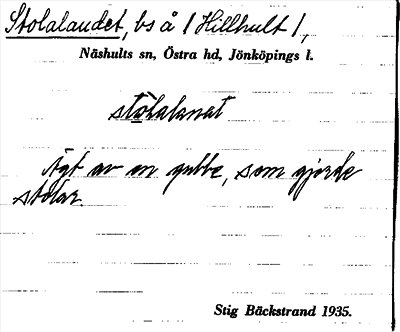 Stolalandet, bs å / Hillhult /,
Näshults sn, Östra hd, Jönköpings l.
stòlalanat
Ägt av en gubbe, som gjorde
stolar.
Stig Bäckstrand 1935.